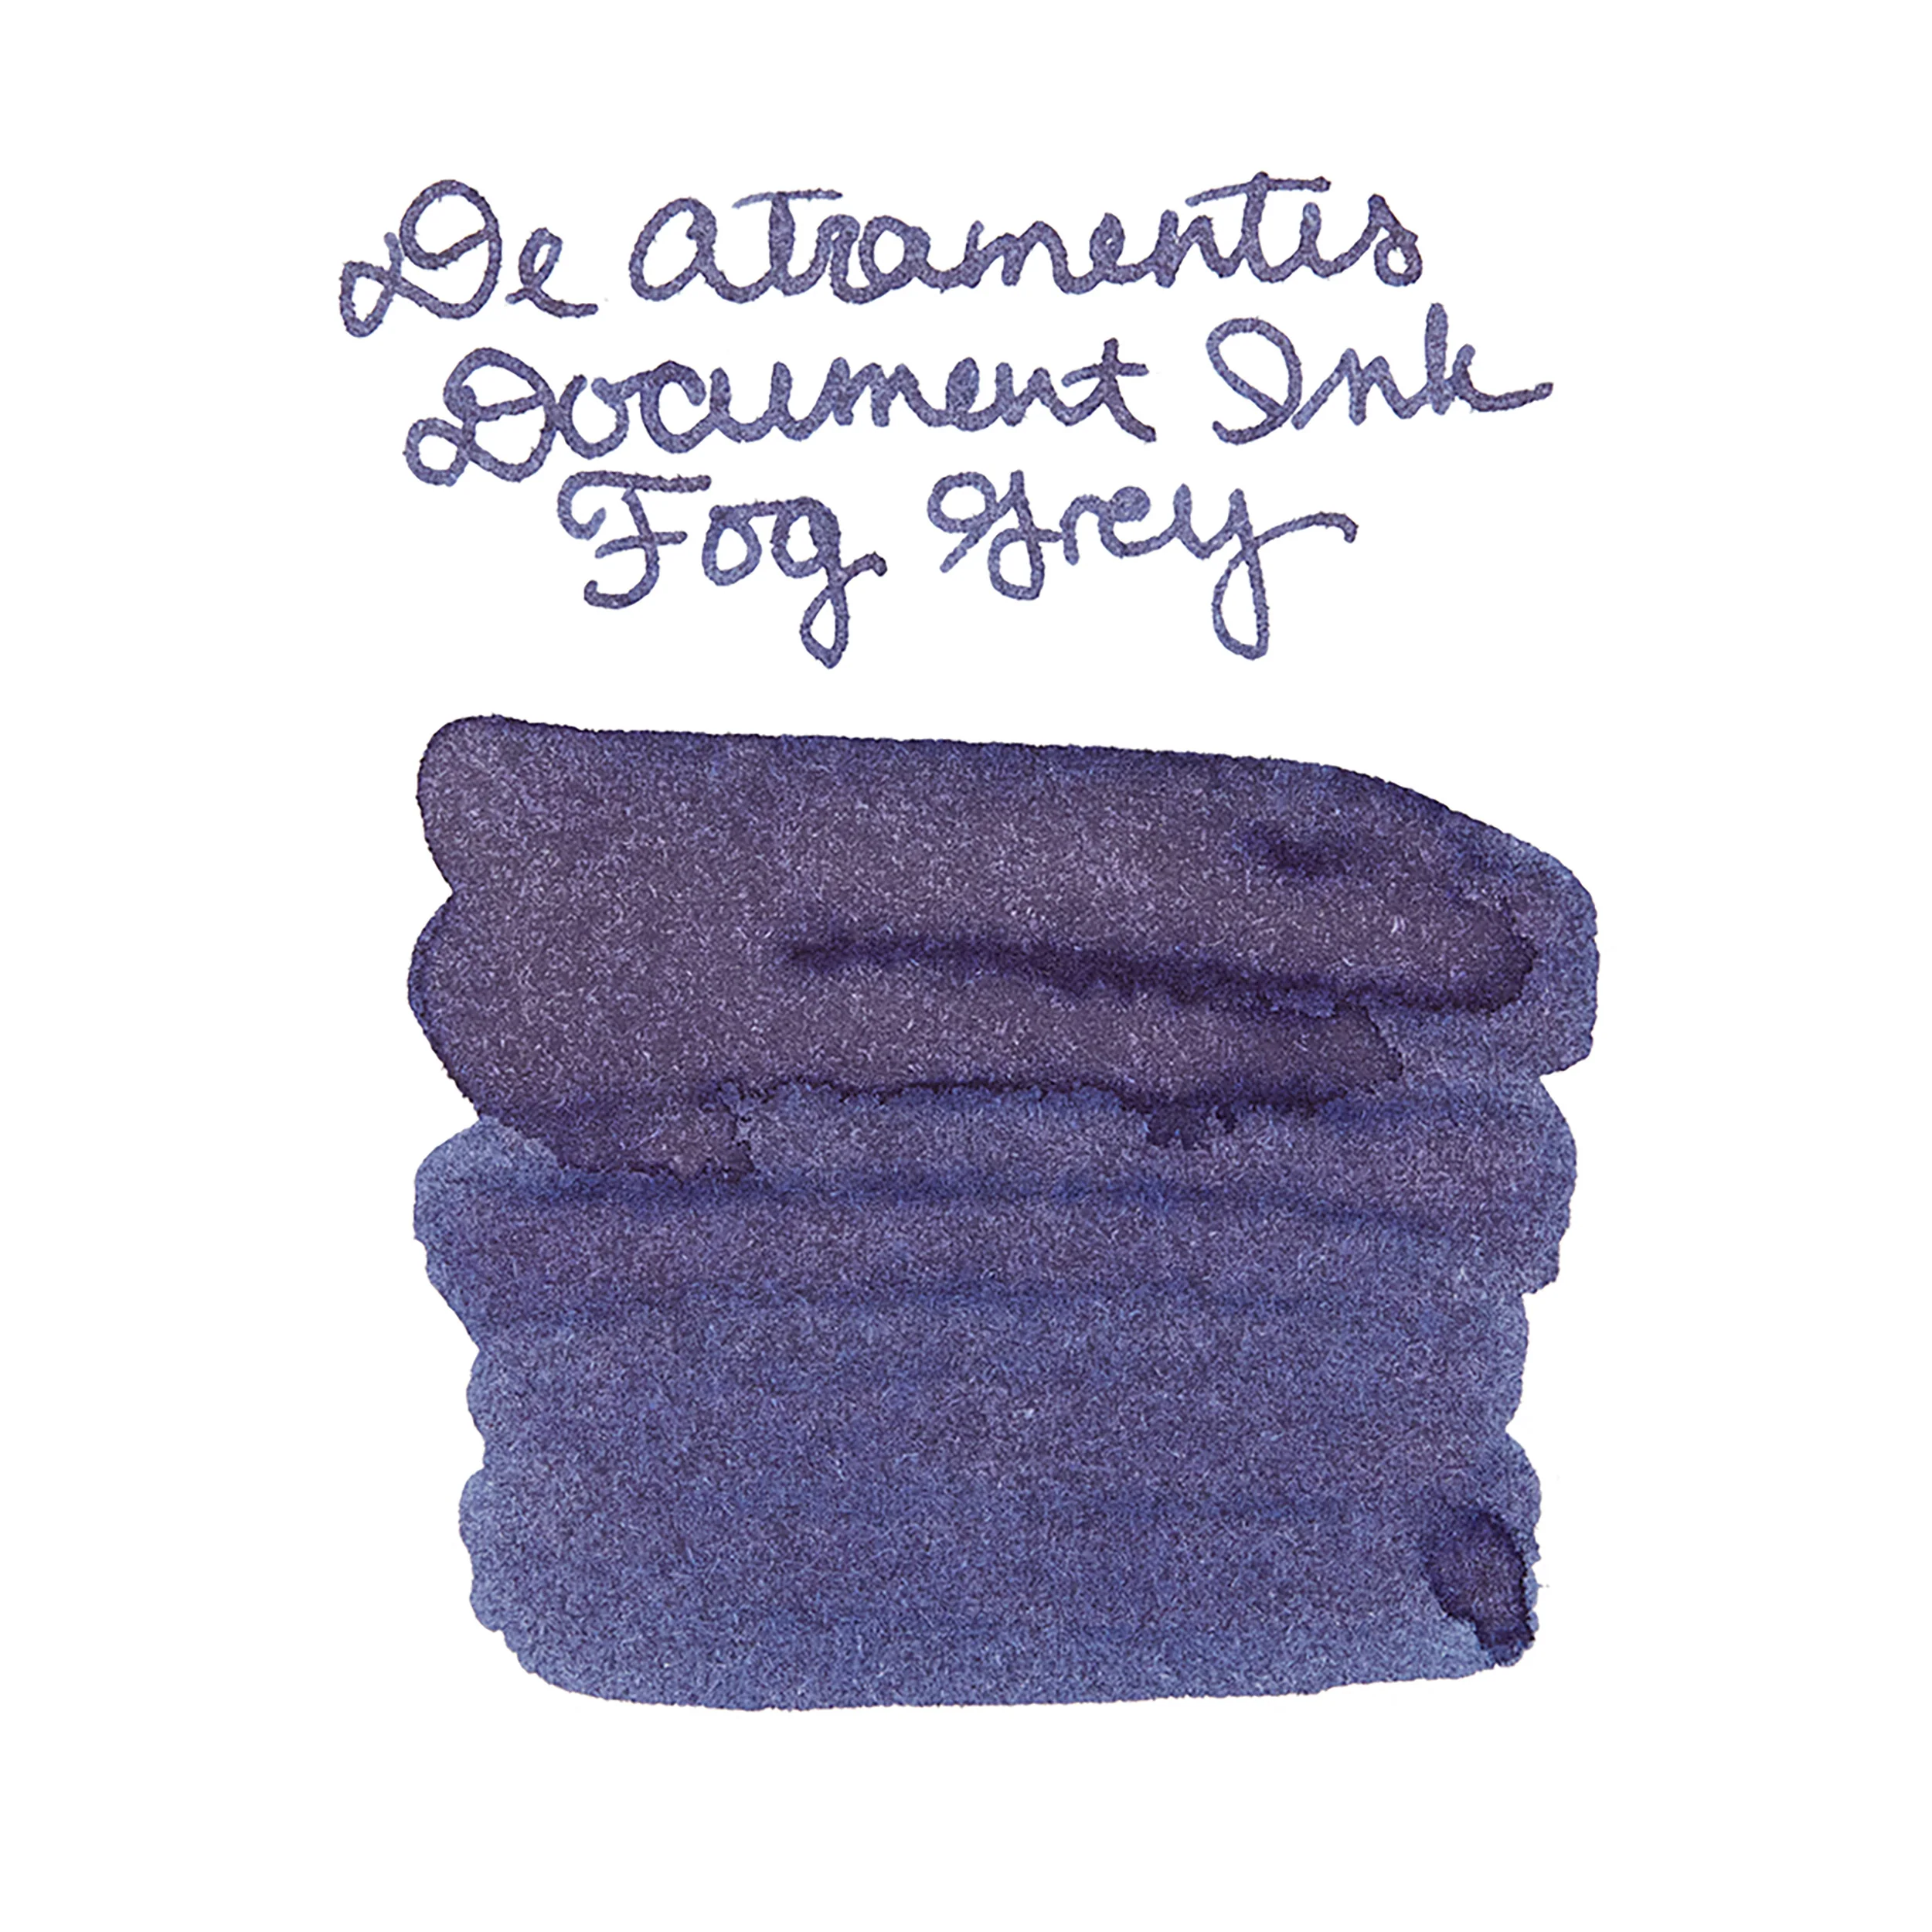 De Atramentis
Document Ink
Fog Grey